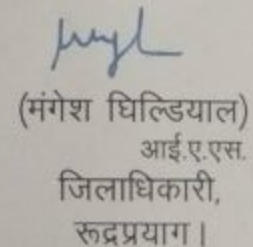 (मंगेश घिल्डियाल)
आई.ए.एस.
जिलाधिकारी,
रूद्रप्रयाग।